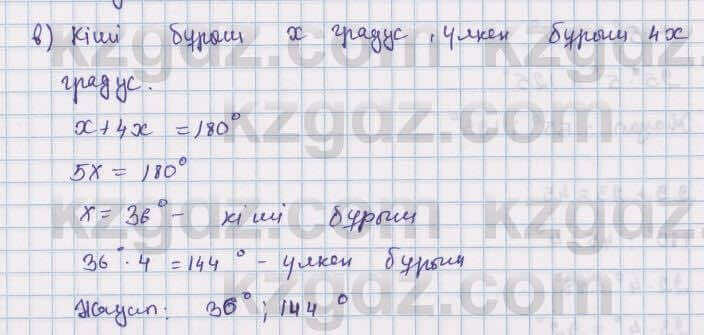 в) Кіші бұрыш х градус, үлкен бұрыш 4х
градус.
х+4х =180°
5х = 180°
х= 36° - кіші бұрыш
36° · 4 =144° - үлкен бұрыш
Жауап: 36°; 144°
kzgdz.com
kzgdz.com
kzgdz.com